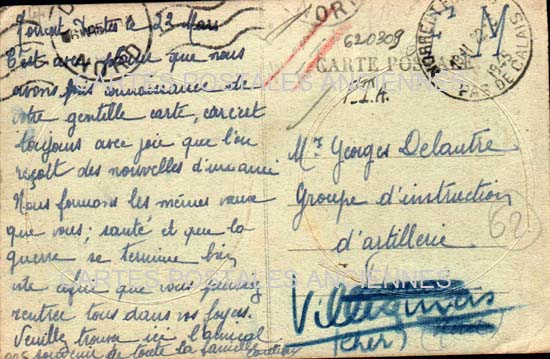 le 23 Mars
C'est avec plaisir que nous
avons pris connaissance de
votre gentille carte, car c'est
toujours avec joie que l'on
reçoit des nouvelles d'un ami
Nous formons les mêmes vœux
que vous; santé et que la
guerre se termine bien
vite afin que vous puissiez
rentrer tous dans vos foyers.
Veuillez trouver ici l'amical
souvenir de toute la famille
620309
CARTE POSTALE
F M
NORRENT
PAS DE CALAIS
Mr Georges Delautre
Groupe d'instruction
d'artillerie
(Cher)
62
CARTES POSTALES ANCIENNES
CARTES POSTALES ANCIENNES